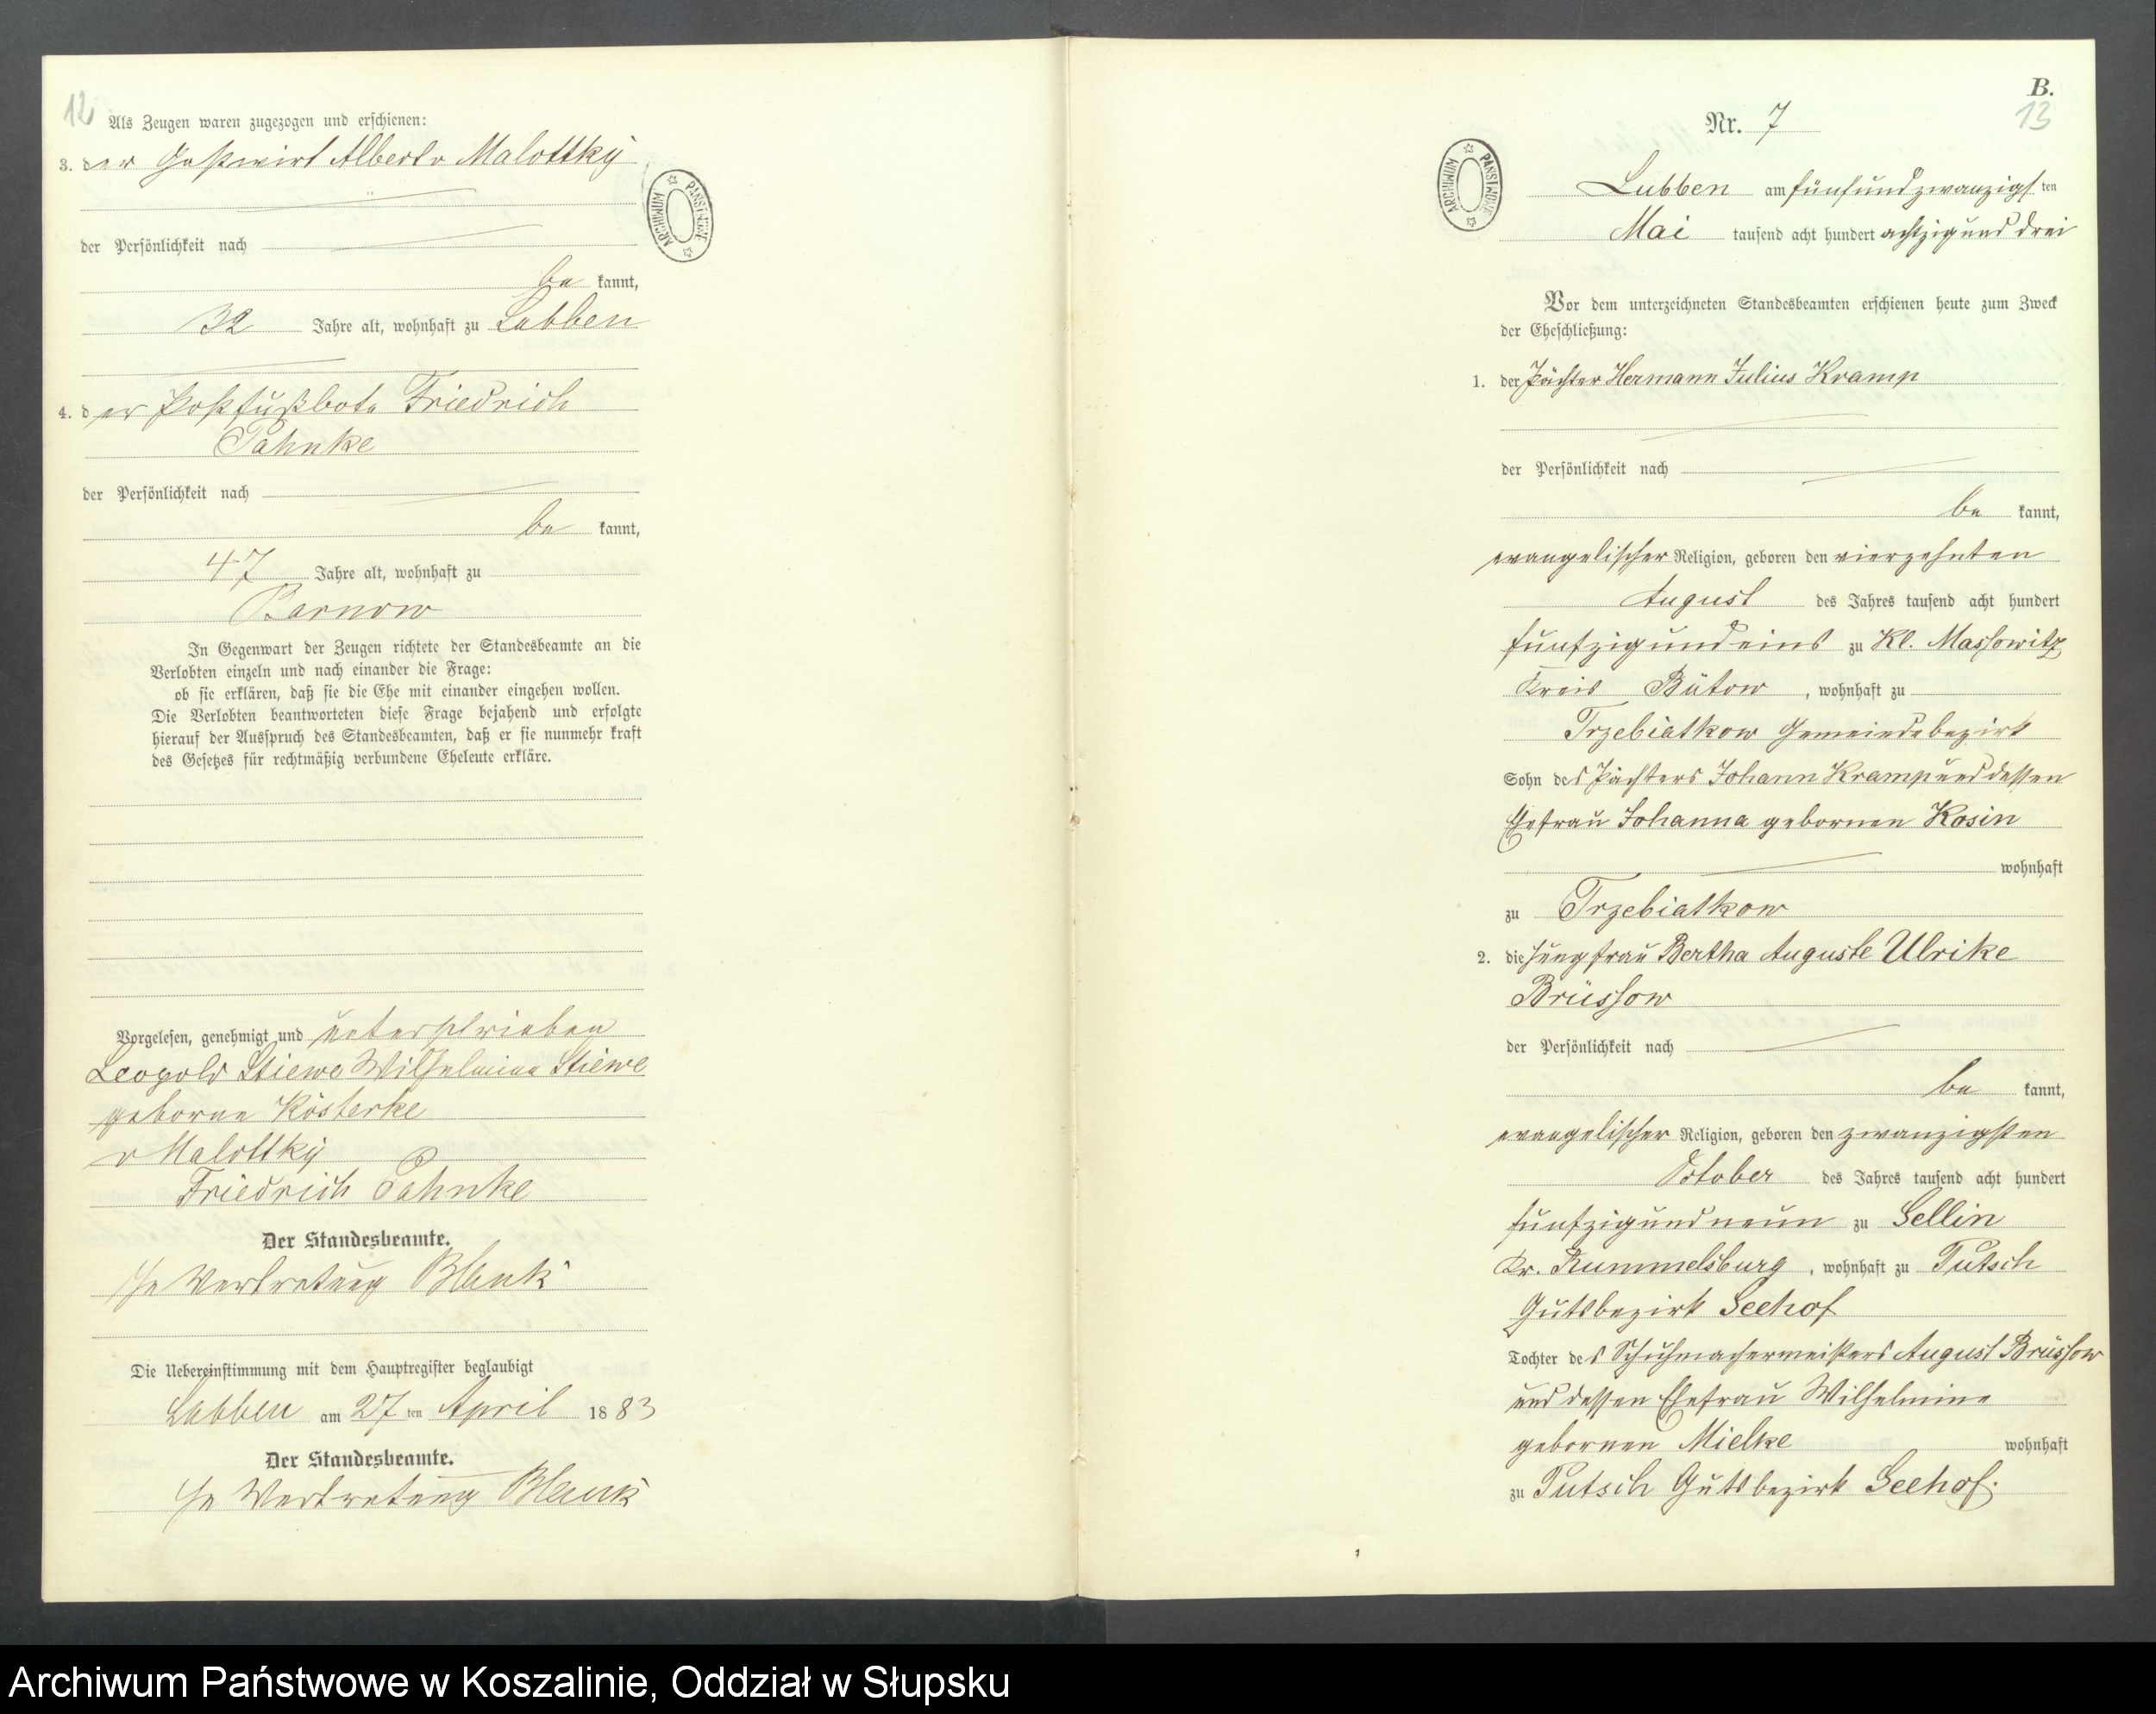 12
Als Zeugen waren zugezogen und erschienen:
3. der Gastwirt Albert v Malottky
der Persönlichkeit nach
be kannt,
32 Jahre alt, wohnhaft zu Lubben
4. der Postfußbote Friedrich
Pahnke
der Persönlichkeit nach
be kannt,
47 Jahre alt, wohnhaft zu
Barnow
In Gegenwart der Zeugen richtete der Standesbeamte an die
Verlobten einzeln und nach einander die Frage:
ob sie erklären, daß sie die Ehe mit einander eingehen wollen.
Die Verlobten beantworteten diese Frage bejahend und erfolgte
hierauf der Ausspruch des Standesbeamten, daß er sie nunmehr kraft
des Gesetzes für rechtmäßig verbundene Eheleute erkläre.
Vorgelesen, genehmigt und unterschrieben
Leopold Stiewe Wilhelmine Stiewe
geborne Kösterke
v Malottky
Friedrich Pahnke
Der Standesbeamte.
In Vertretung Blenk
Die Uebereinstimmung mit dem Hauptregister beglaubigt
Lubben am 27 ten April 1883
Der Standesbeamte.
In Vertretung Blenk
ARCHIWUM PAŃSTWOWE
B.
13
Nr. 7
ARCHIWUM PAŃSTWOWE
Lubben am fünfundzwanzigsten
Mai tausend acht hundert achtzig und drei
Vor dem unterzeichneten Standesbeamten erschienen heute zum Zweck
der Eheschließung:
1. der Pächter Hermann Julius Kramp
der Persönlichkeit nach
be kannt,
evangelischer Religion, geboren den vierzehnten
August des Jahres tausend acht hundert
fünfzig und eins zu Kl. Massowitz
Kreis Bütow, wohnhaft zu
Trzebiatkow Gemeindebezirk
Sohn des Pächters Johann Kramp und dessen
Ehefrau Johanna gebornen Kosin
wohnhaft
zu Trzebiatkow
2. die Jungfrau Bertha Auguste Ulrike
Brüssow
der Persönlichkeit nach
be kannt,
evangelischer Religion, geboren den zwanzigsten
October des Jahres tausend acht hundert
fünfzig und neun zu Sellin
Kr. Rummelsburg, wohnhaft zu Putsch
Gutsbezirk Seehof
Tochter des Schuhmachermeisters August Brüssow
und dessen Ehefrau Wilhelmine
gebornen Mielke wohnhaft
zu Putsch Gutsbezirk Seehof.
Archiwum Państwowe w Koszalinie, Oddział w Słupsku